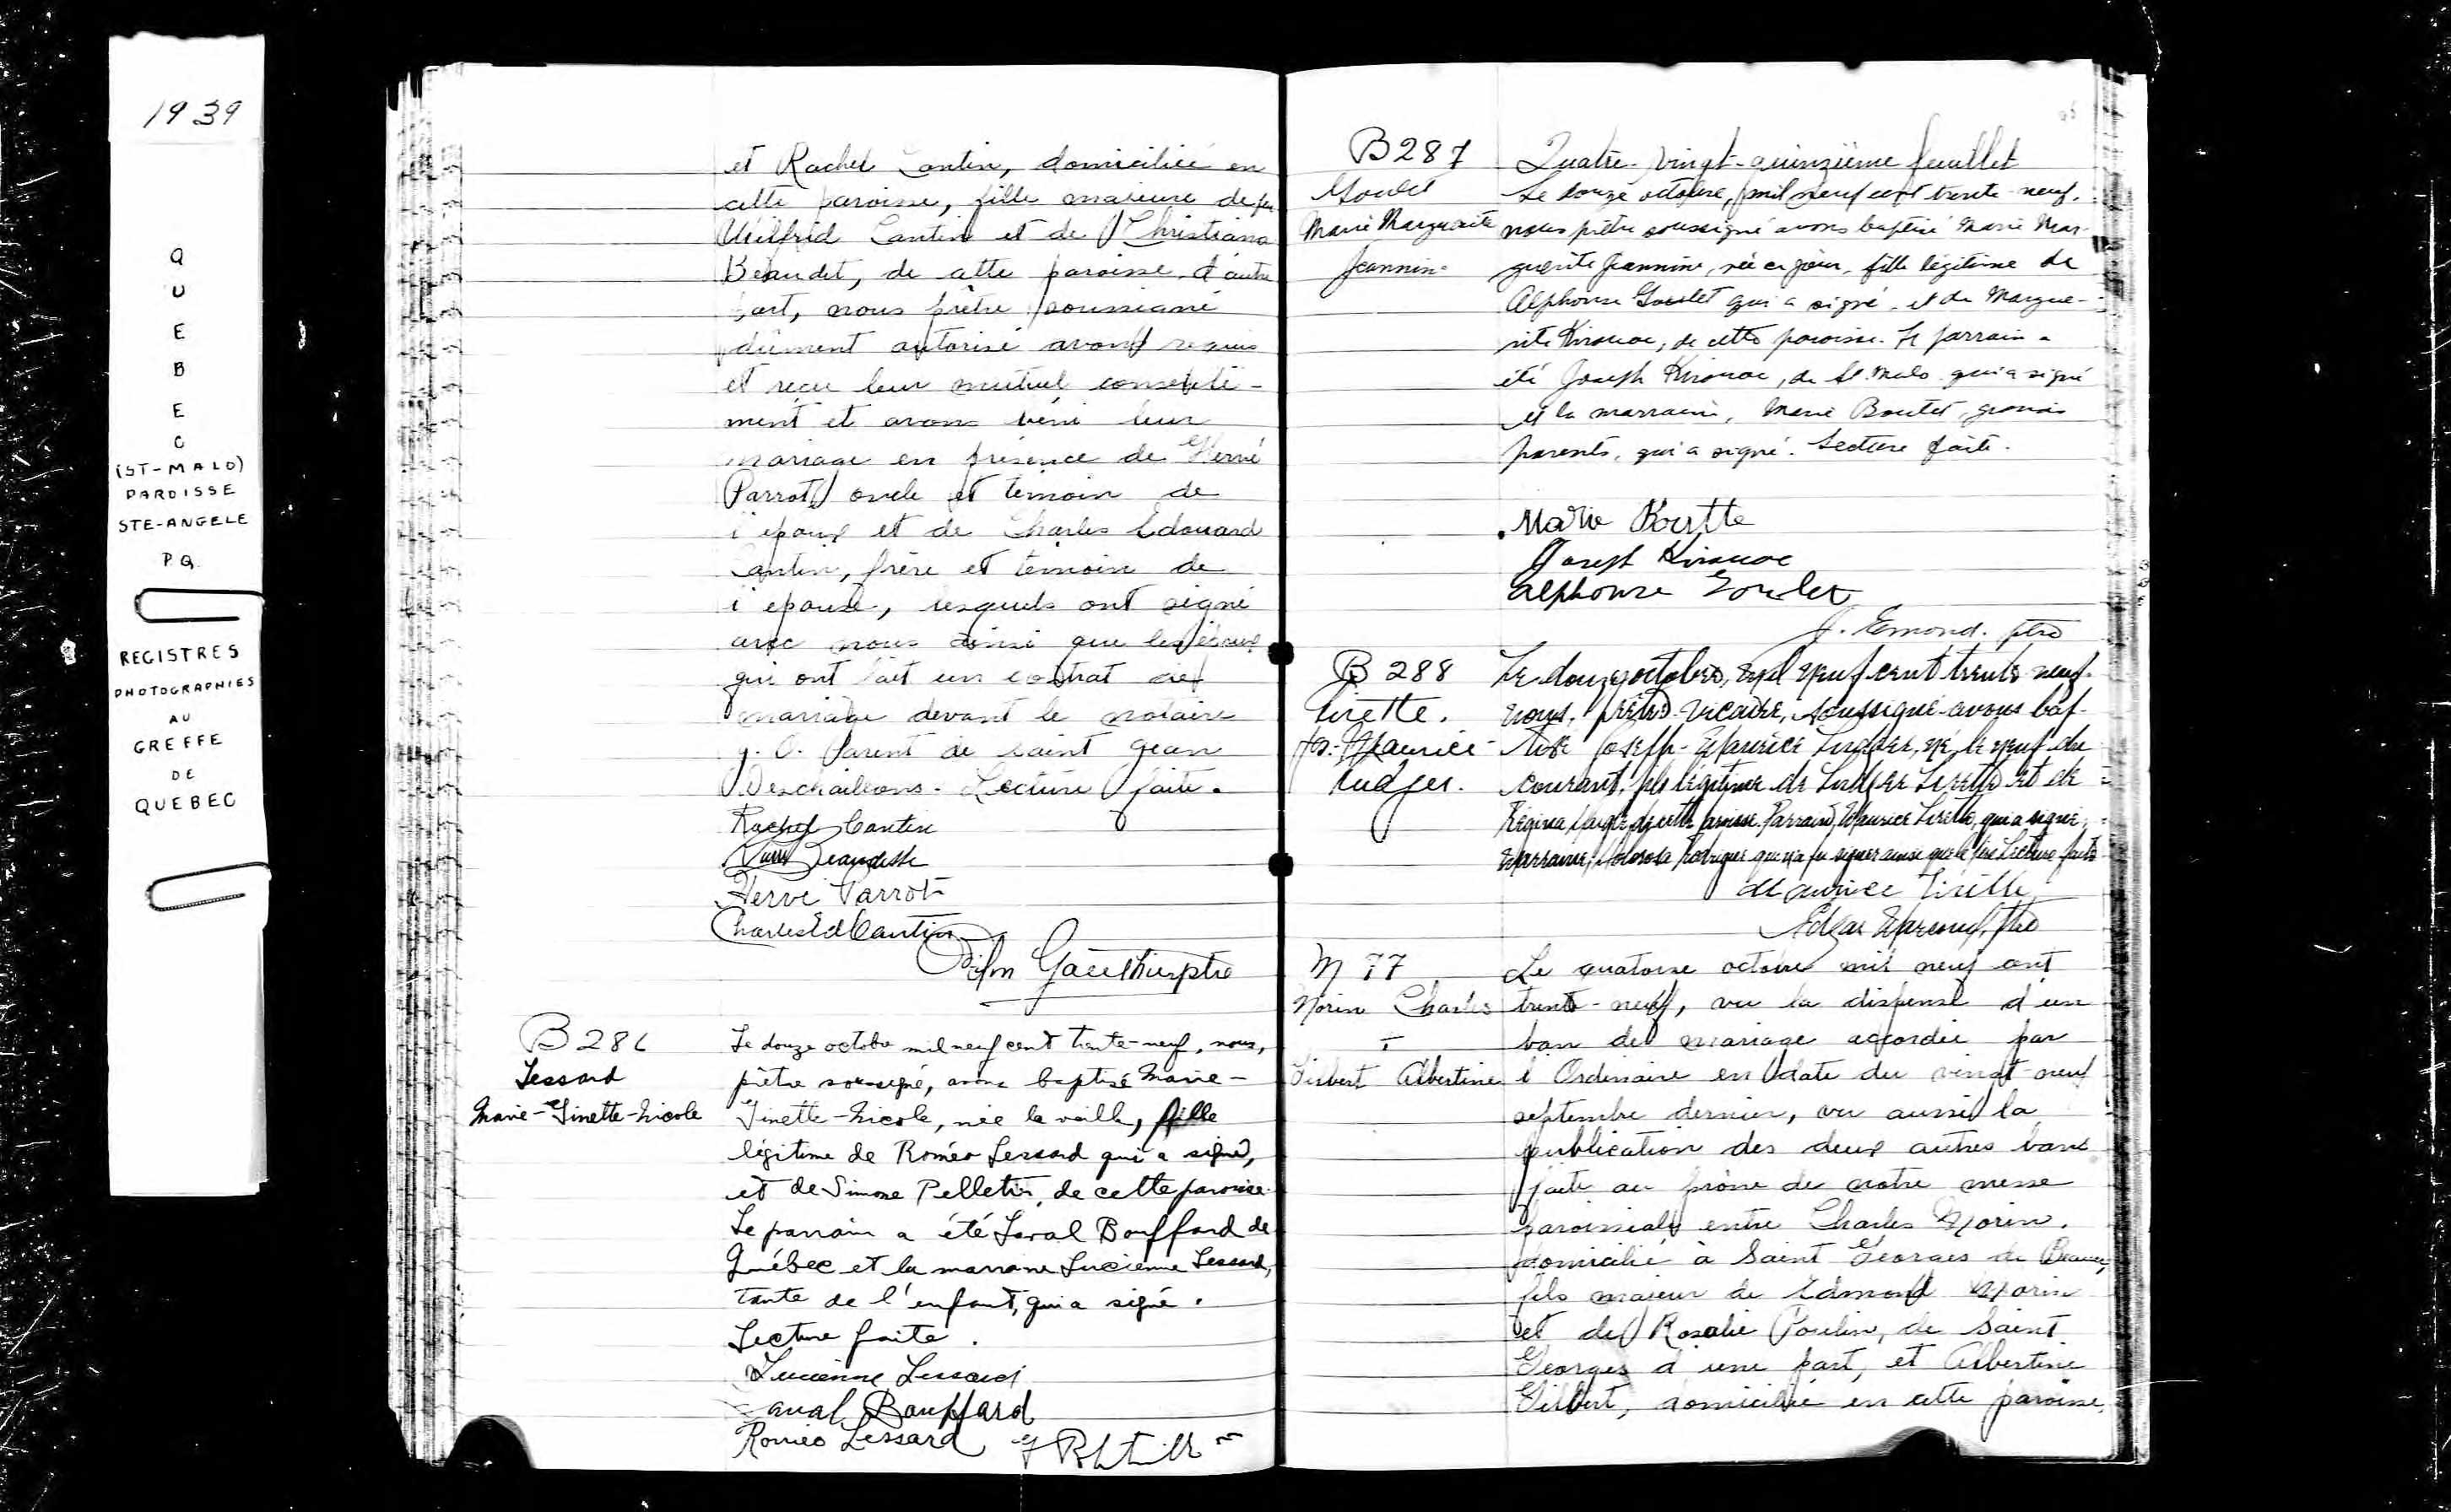 1939
QUEBEC
(ST-MALO)
PAROISSE
STE-ANGELE
P.Q.
REGISTRES
PHOTOGRAPHIES
AU
GREFFE
DE
QUEBEC
et Rachel Cantin, domiciliée en
cette paroisse, fille majeure de feu
Wilfrid Cantin et de Christiana
Beaudet, de cette paroisse d'autre
part, nous prêtre soussigné
dûment autorisé avons requis
et reçu leur mutuel consente-
ment et avons béni leur
mariage en présence de Hervé
Parrot, oncle et témoin de
l'époux et de Charles Edouard
Cantin, frère et témoin de
l'épouse, lesquels ont signé
avec nous ainsi que les époux
qui ont fait un contrat de
mariage devant le notaire
J. O. Parent de Saint Jean
Deschaillons. Lecture faite.
Rachel Cantin
Hervé Parrot
Charles Ed Cantin
Gauthier ptre
B 286
Lessard
Marie-Ginette-Nicole
Le douze octobre mil neuf cent trente-neuf, nous,
prêtre soussigné, avons baptisé Marie-
Ginette-Nicole, née la veille, fille
légitime de Roméo Lessard qui a signé,
et de Simone Pelletier, de cette paroisse.
Le parrain a été Laval Bouffard de
Québec et la marraine Lucienne Lessard,
tante de l'enfant, qui a signé.
Lecture faite.
Lucienne Lessard
Laval Bouffard
Roméo Lessard
B 287
Goulet
Marie Marguerite
Jeannine
Quatre-vingt-quinzième feuillet
Le douze octobre, mil neuf cent trente-neuf,
nous prêtre soussigné avons baptisé Marie Mar-
guerite Jeannine, née ce jour, fille légitime de
Alphonse Goulet qui a signé, et de Margue-
rite Kirouac, de cette paroisse. Le parrain a
été Joseph Kirouac, de St. Malo qui a signé
et la marraine, Marie Boutet, grands
parents, qui a signé. Lecture faite.
Marie Boutte
Joseph Kirouac
Alphonse Goulet
J. Emond. ptre
B 288
Lirette.
Jos.-Maurice-
Ludger.
Le douze octobre, mil neuf cent trente-neuf
nous, prêtre-vicaire, soussigné avons bap-
tisé Joseph-Maurice Ludger, né le neuf du
courant, fils légitime de Ludger Lirette et de
Régina de cette paroisse. Parrain, Maurice Lirette, qui a signé;
marraine, Rodrigue qui n'a pu signer ainsi que le père. Lecture faite
Maurice Lirette
Edgar ptre
M 77
Morin Charles
Gilbert Albertine
Le quatorze octobre mil neuf cent
trente-neuf, vu la dispense d'un
ban de mariage accordée par
l'Ordinaire en date du vingt-neuf
septembre dernier, vu aussi la
publication des deux autres bans
faite au prône de notre messe
paroissiale entre Charles Morin,
domicilié à Saint Georges de Beauce,
fils majeur de Edmond Morin
et de Rosalie Poulin, de Saint
Georges d'une part, et Albertine
Gilbert, domiciliée en cette paroisse,